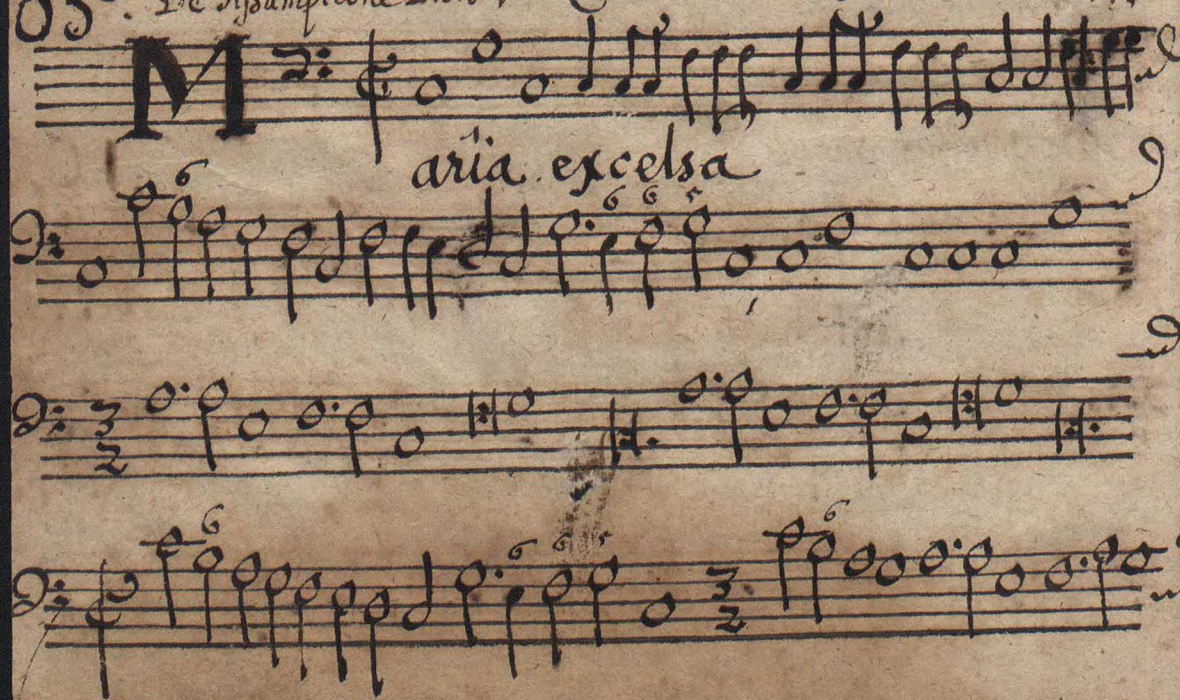 De Assumptione
M
aria excelsa
6
6 6 5
3
2
6
6 6 5
3
2
6